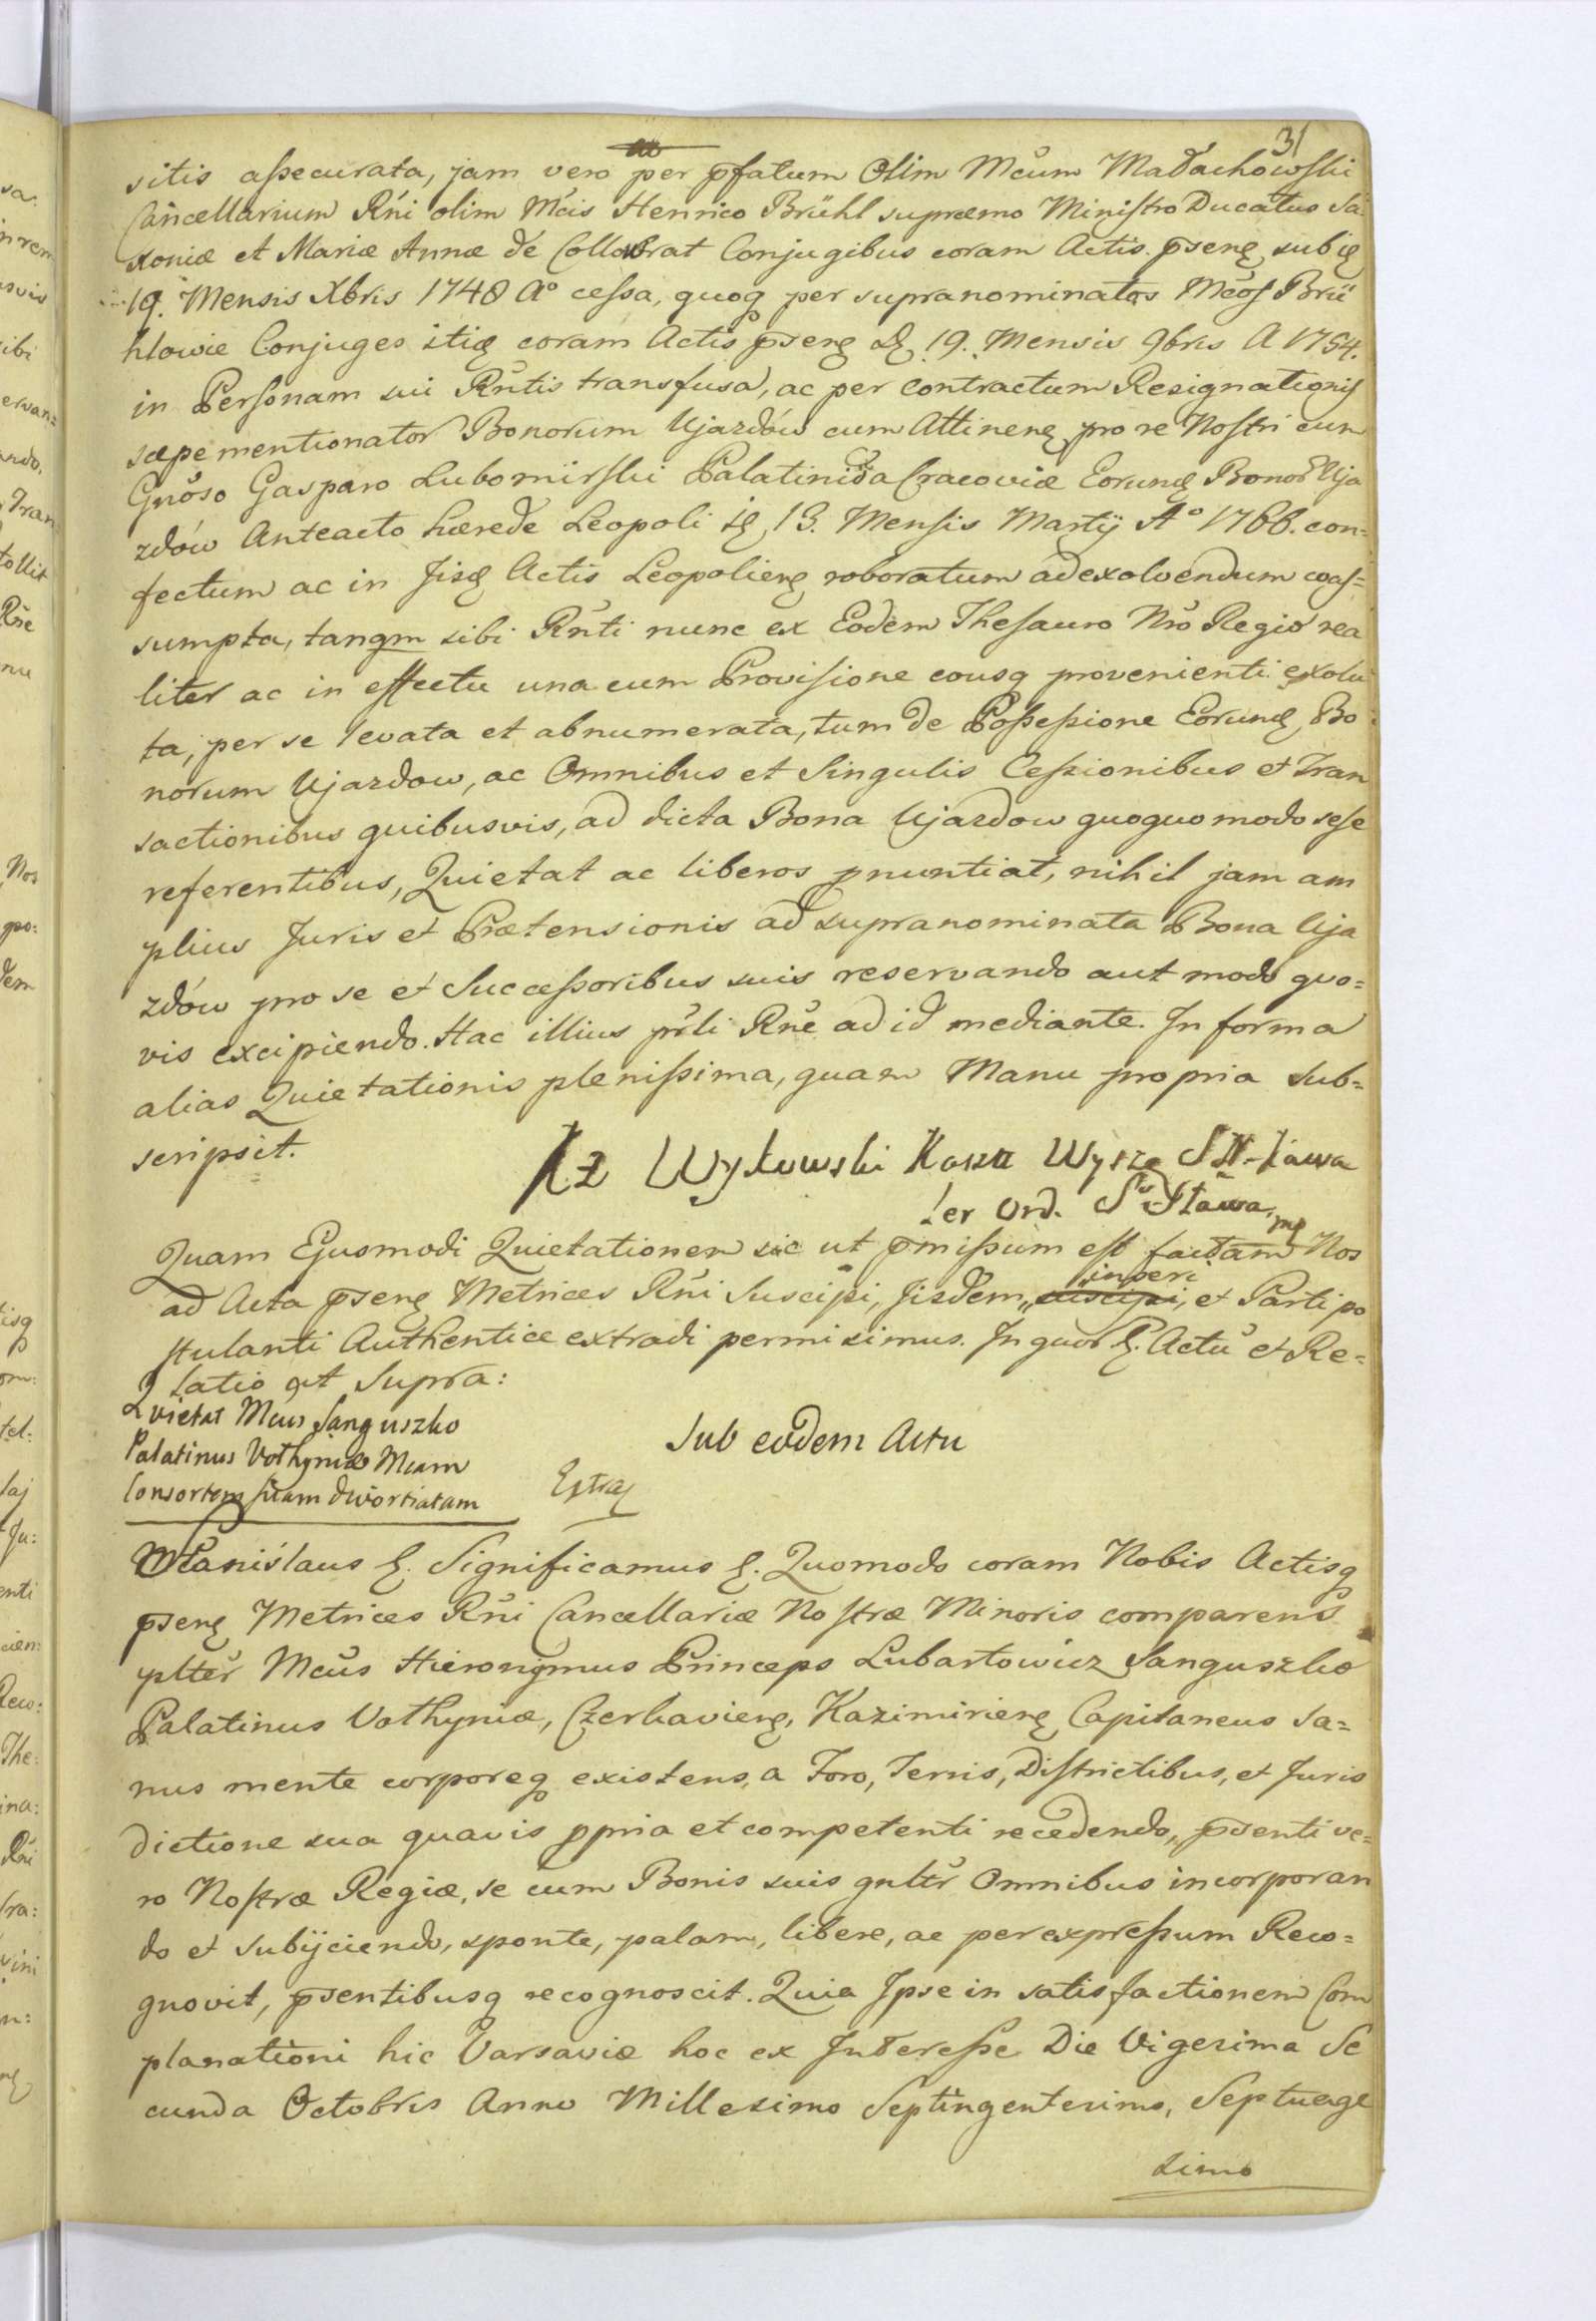 31
sitis assecurata, jam vero per pfatum Olim Mcum Małachowski
Cancellarium Rni olim Mcis Henrico Brühl supremo Ministro Ducatus Sa
xoniæ et Mariæ Annæ de Collowrat Conjugibus coram Actis psenę sub ię
19. Mensis Xbris 1748 A° cessa, quoq per supranominatos Mcos Brü
hlowie Conjuges itię coram Actis psenę Dę 19. Mensis 9bris A 1754.
in Personam sui Rntis transfusa, ac per contractum Resignationis
sæpe mentionator Bonorum Ujazdów cum Attinenę pro re Nostri cum
Gnoso Gasparo Lubomirski Palatinida Cracoviæ Eorunę Bonor Uja
zdów Anteacto hærede Leopoli ię 13. Mensis Martÿ A° 1766. con=
fectum ac in Jisę Actis Leopolienę roboratum ad exolvendum coas=
sumpta, tanqm sibi Rnti nunc ex Eodem Thesauro Nro Regio rea
liter ac in effectu una cum Provisione eousq provenienti exolu
ta, per se levata et abnumerata, tum de Possessione Eorunę Bo
norum Ujazdow, ac Omnibus et Singulis Cessionibus et Tran
sactionibus quibusvis, ad dicta Bona Ujazdow quoquo modo sese
referentibus, Quietat ac liberos pnuntiat, nihil jam am
plius Juris et Prætensionis ad supranominata Bona Uja
zdów pro se et Successoribus suis reservando aut modo quo=
vis excipiendo. Hac illius prli Rne ad id mediante. In forma
alias Quietationis plenissima, quam Manu propria sub=
scripsit.
Wykowski Wysze
ler Ord. S Stawa, mp
Quam Ejusmodi Quietationem sic ut pmissum est factam Nos
ad Acta psenę Metrices Rni Suscipi, Jisdem, inseri, et Parti po
stulanti Authentice extradi permisimus. In quor ę. Actu et Re=
latio ut Supra:
Quietat Mcus Sanguszko
Palatinus Volhyniæ Mcam
Consortem suam divortiatam
Sub eodem Actu
Extraj
Stanislaus ę. Significamus ę. Quomodo coram Nobis Actisq
psenę Metrices Rni Cancellariæ Nostræ Minoris comparens
plter Mcus Hieronymus Princeps Lubartowicz Sanguszko
Palatinus Volhyniæ, Czerkavienę, Kazimirienę Capitaneus sa=
nus mente corporeq existens, a Foro, Terris, Districtibus, et Juris
dictione sua quavis ppria et competenti recedendo, psenti ve=
ro Nostræ Regiæ, se cum Bonis suis gnltr Omnibus incorporan
do et subÿciendo, sponte, palam, libere, ac per expressum Reco=
gnovit, psentibusq recognoscit. Quia Ipse in satisfactionem Com
planationi hic Varsaviæ hoc ex Interesse Die Vigesima Se
cunda Octobris Anno Millesimo Septingentesimo, Septuage
simo